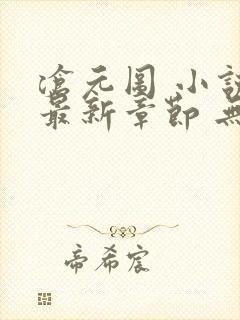 滄元图 小説
最新章節 無
帝希宸